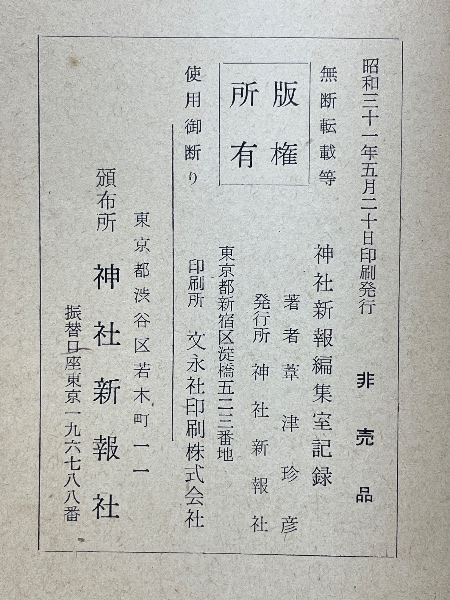 昭和三十一年五月二十日印刷発行
非売品
無断転載等
版権
所有
使用御断り
神社新報編集室記録
著者 葦津珍彦
発行所 神社新報社
東京都新宿区淀橋五二三番地
印刷所 文永社印刷株式会社
東京都渋谷区若木町一一
頒布所 神社新報社
振替口座東京一九六七八八番